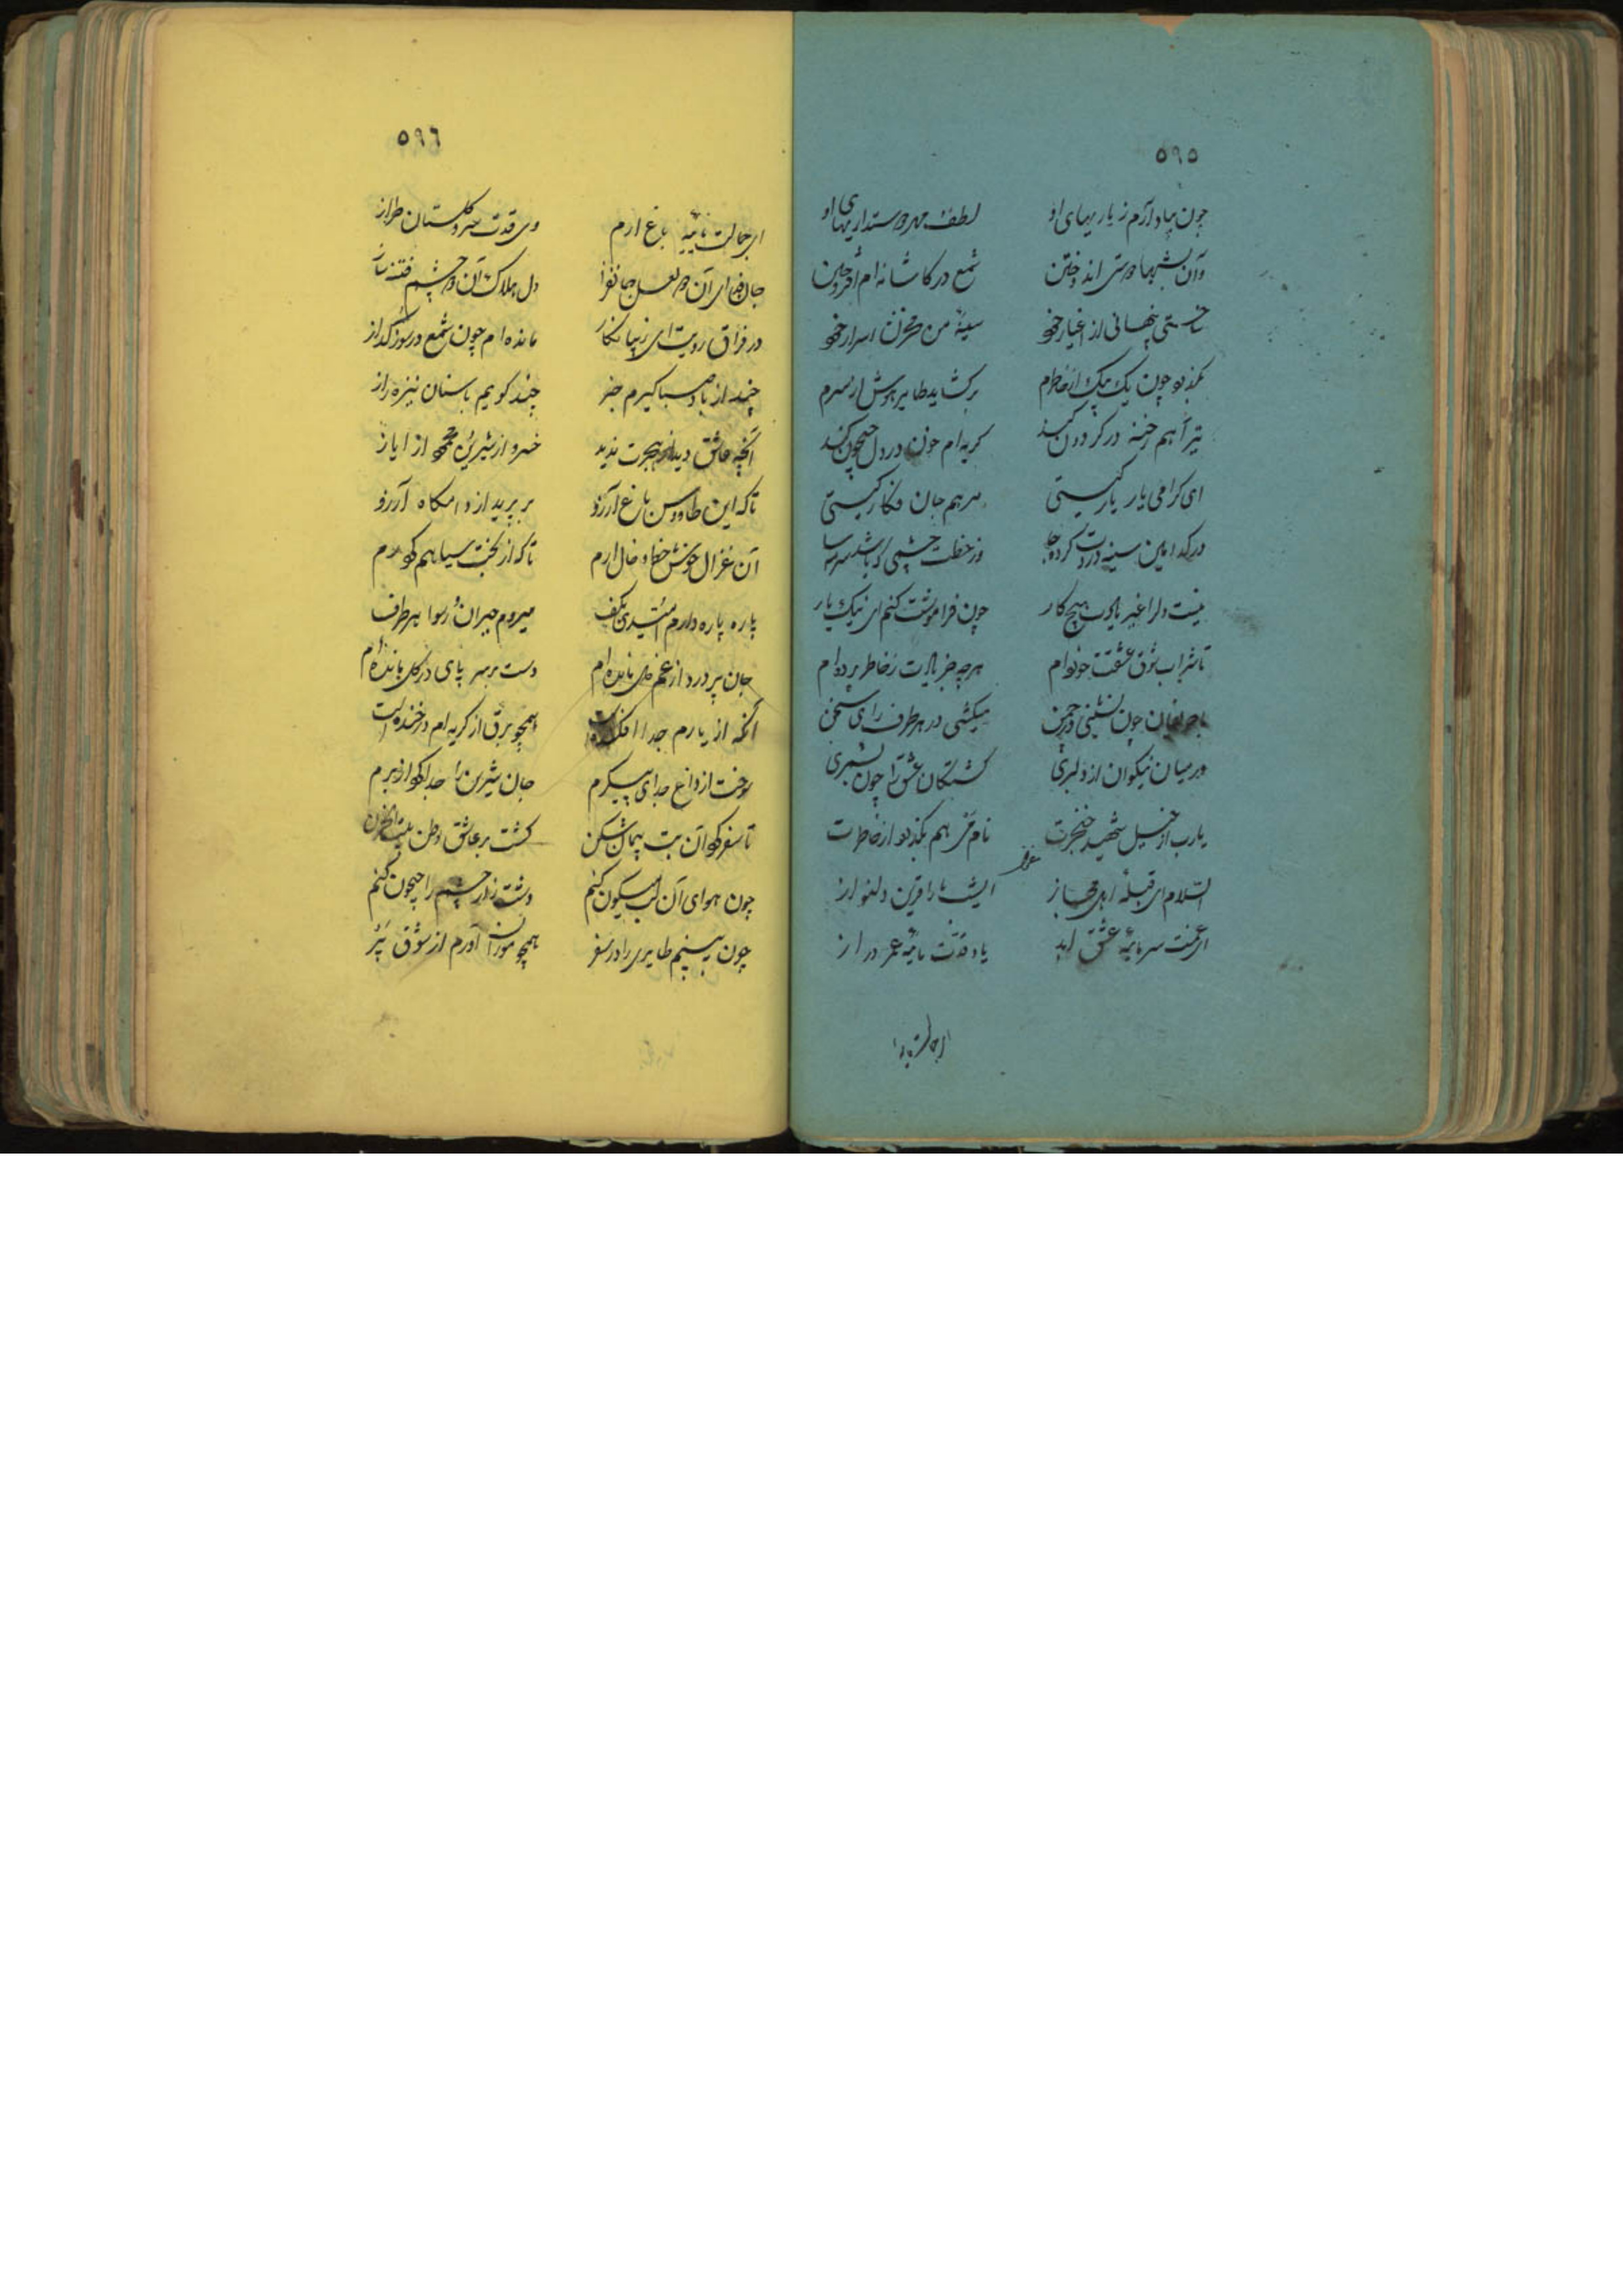 ٥٩٥
چون بیاد آرم ز یاریهای او لطف و دوستداریهای او
وآن بشبها دوستی اندوختن شمع در کاشانه‌ام افروختن
ساختی پنهانی از اغیار خود سینهٔ من مخزن اسرار خود
بگذرد چون یک بیک از خاطرم برگشاید طایر هوش از سرم
تیر آهم رخنه در گردون کند گریه‌ام خون در دل جیحون کند
ای گرامی یار یار کیستی مرهم جان فکار کیستی
در کدامین سینه دردت کرده جا وز خطت چشمی که باشد سرمه سا
نیست دلرا غیر یادت هیچ کار چون فراموشت کنم ای نیک یار
تا شراب شوق عشقت خورده‌ام هرچه جز یادت ز خاطر برده‌ام
با حریفان چون نشینی در چمن میکشی در هر طرف رای سخن
در میان نیکوان از دلبری کشتگان عشق را چون بشمری
یارب از خیل شهید خنجرت نام من هم بگذرد از خاطرت
السلام ای قبلهٔ اهل مجاز ایشما را قرین دلنواز
ای غمت سرمایهٔ عشق ابد یاد قدت مایهٔ عمر دراز
٥٩٦
ای جمالت مایهٔ باغ ارم وی قدت سرو گلستان طراز
جان فدای آن دو لعل جانفزا دل هلاک آن دو چشم فتنه ساز
در فراق رویت ای زیبا نگار مانده‌ام چون شمع در سوز و گداز
چند از باد صبا گیرم خبر چند گویم باستان نیزه راز
آنچه عاشق دید از هجرت ندید خسرو از شیرین و محمود از ایاز
تا که این طاووس باغ آرزو بر پرید از دامگاه آرزو
آن غزال خوش خط و خال ارم تا که از بخت سیاهم کرد رم
پاره پاره دارم امیدی بکف میروم حیران و رسوا هر طرف
جان پر درد از غم دل مانده‌ام دست بر سر پای در گل مانده‌ام
آنکه از یارم جدا افکنده است همچو برق از گریه‌ام در خنده است
سوخت از داغ جدای پیکرم جان شیرین را جدا کرد از برم
تا سفر کرد آن بت پیمان شکن گشت بر عاشق وطن بیت الحزن
چون هوای آن لب میگون کنم دشت زار چشم را جیحون کنم
چون ببینم طایری را در سفر همچو موران آورم از شوق پر